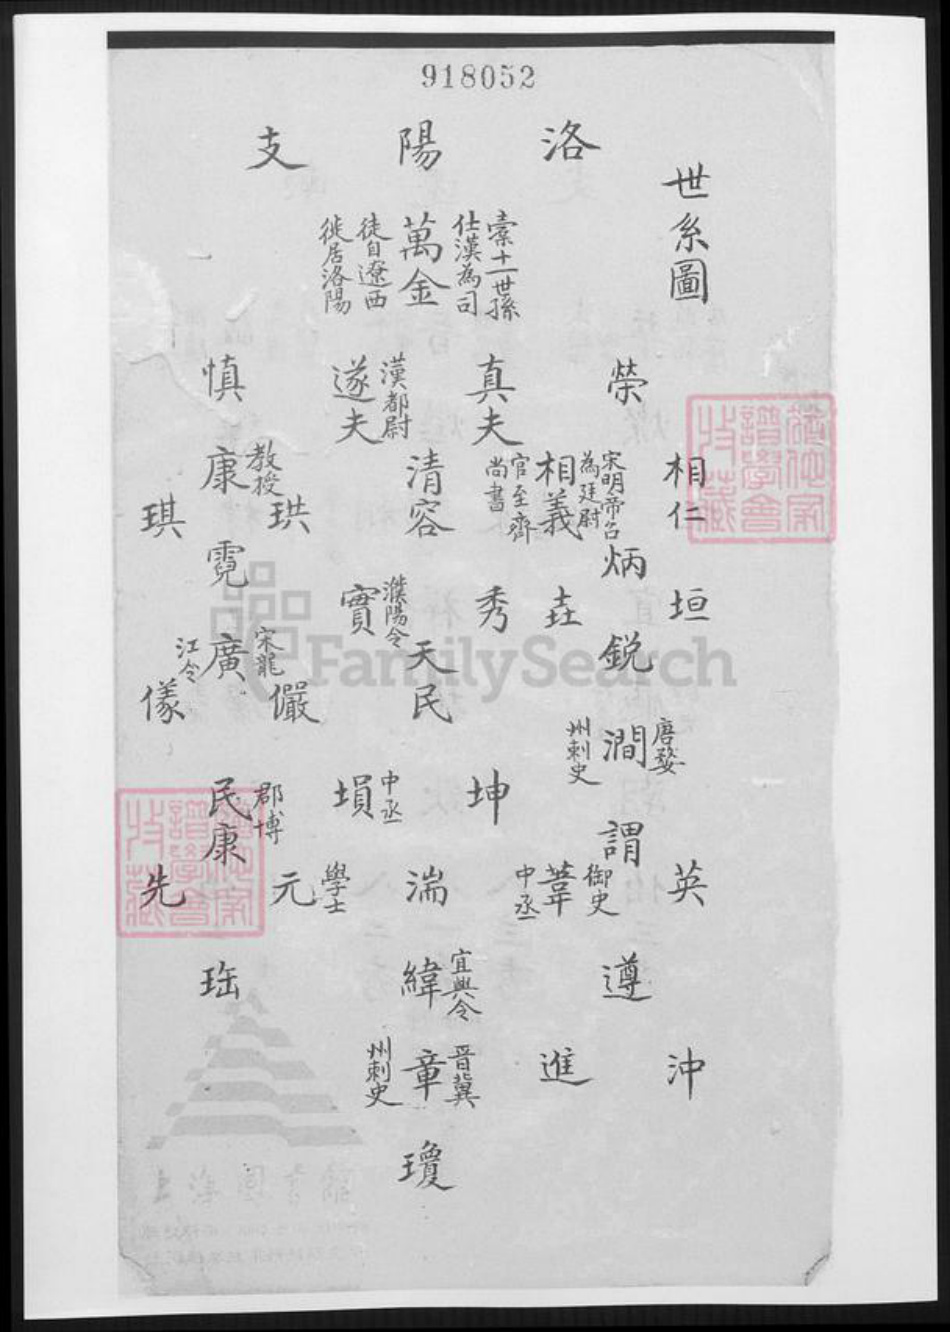 918052
世系圖
洛陽支
索十一世孫
仕漢為司
萬金
徒自遼西
徙居洛陽
榮
真夫
漢都尉
遂夫
慎
相仁
宋明帝召
為廷尉
相義
官至齊
尚書
清容
教授
康
珙
琪
炳
霓
垣
垚
秀
濮陽令
實
銳
天民
宋龍
廣
江令
儼
儀
唐婺
澗
州刺史
坤
中丞
塤
郡博
民康
謂
英
御史
葦
中丞
湍
學士
元
先
遵
宜興令
緯
沖
進
晋冀
章
州刺史
瓊
FamilySearch